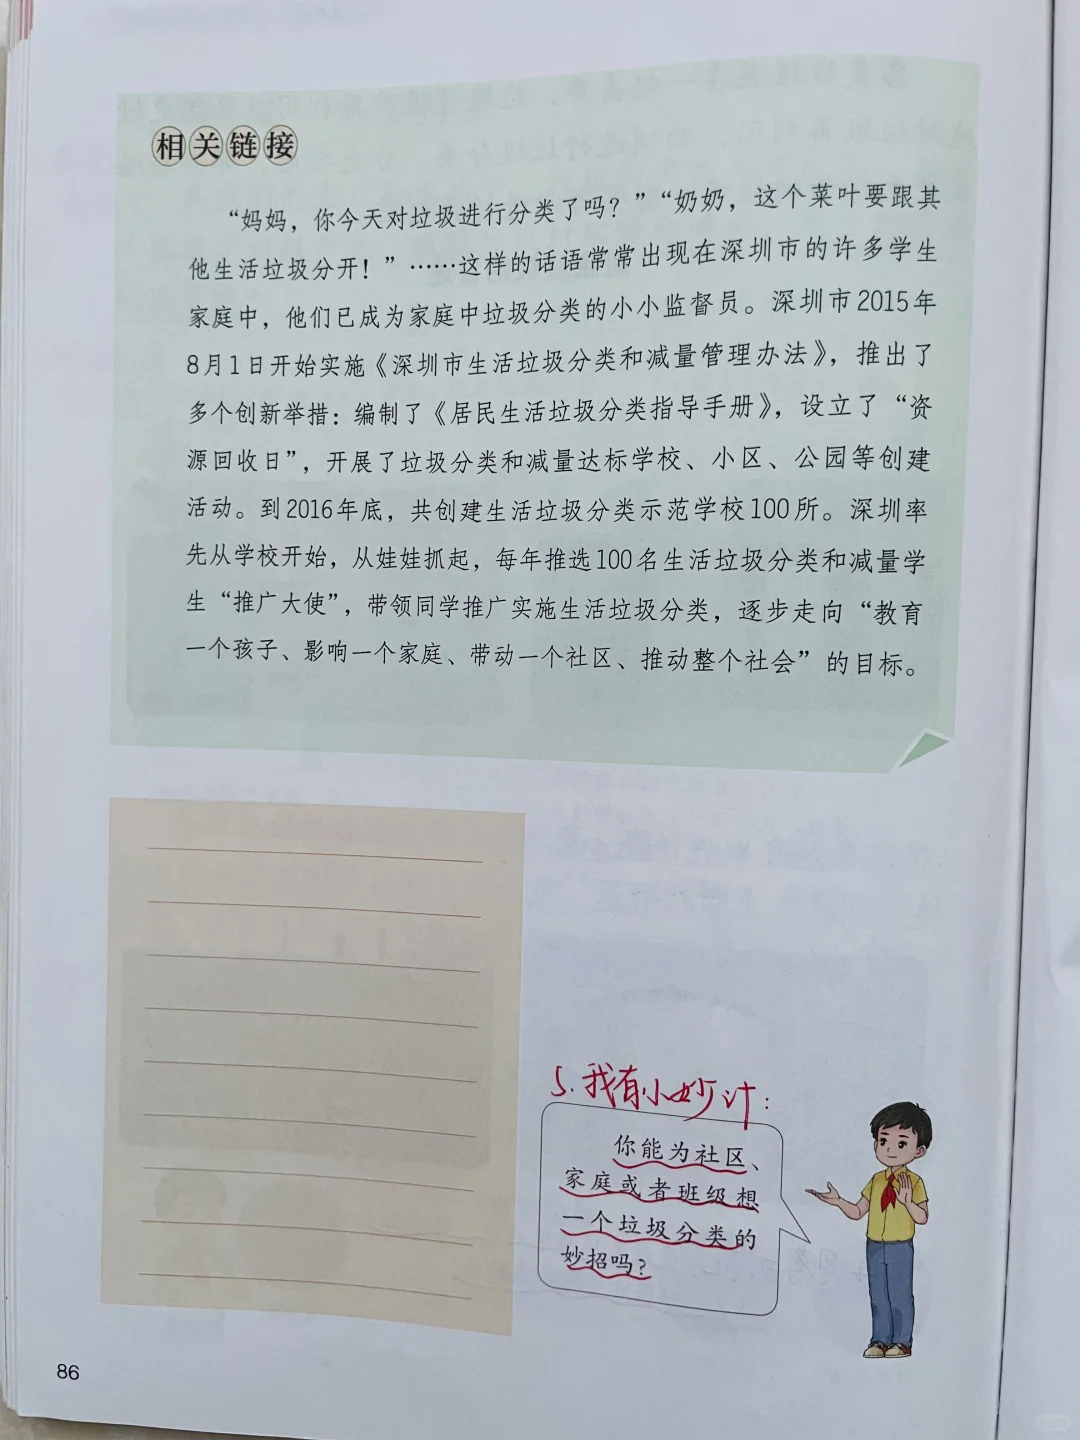 相关链接
“妈妈，你今天对垃圾进行分类了吗？”“奶奶，这个菜叶要跟其
他生活垃圾分开！”……这样的话语常常出现在深圳市的许多学生
家庭中，他们已成为家庭中垃圾分类的小小监督员。深圳市2015年
8月1日开始实施《深圳市生活垃圾分类和减量管理办法》，推出了
多个创新举措：编制了《居民生活垃圾分类指导手册》，设立了“资
源回收日”，开展了垃圾分类和减量达标学校、小区、公园等创建
活动。到2016年底，共创建生活垃圾分类示范学校100所。深圳率
先从学校开始，从娃娃抓起，每年推选100名生活垃圾分类和减量学
生“推广大使”，带领同学推广实施生活垃圾分类，逐步走向“教育
一个孩子、影响一个家庭、带动一个社区、推动整个社会”的目标。
5.我有小妙计：
你能为社区、
家庭或者班级想
一个垃圾分类的
妙招吗？
86